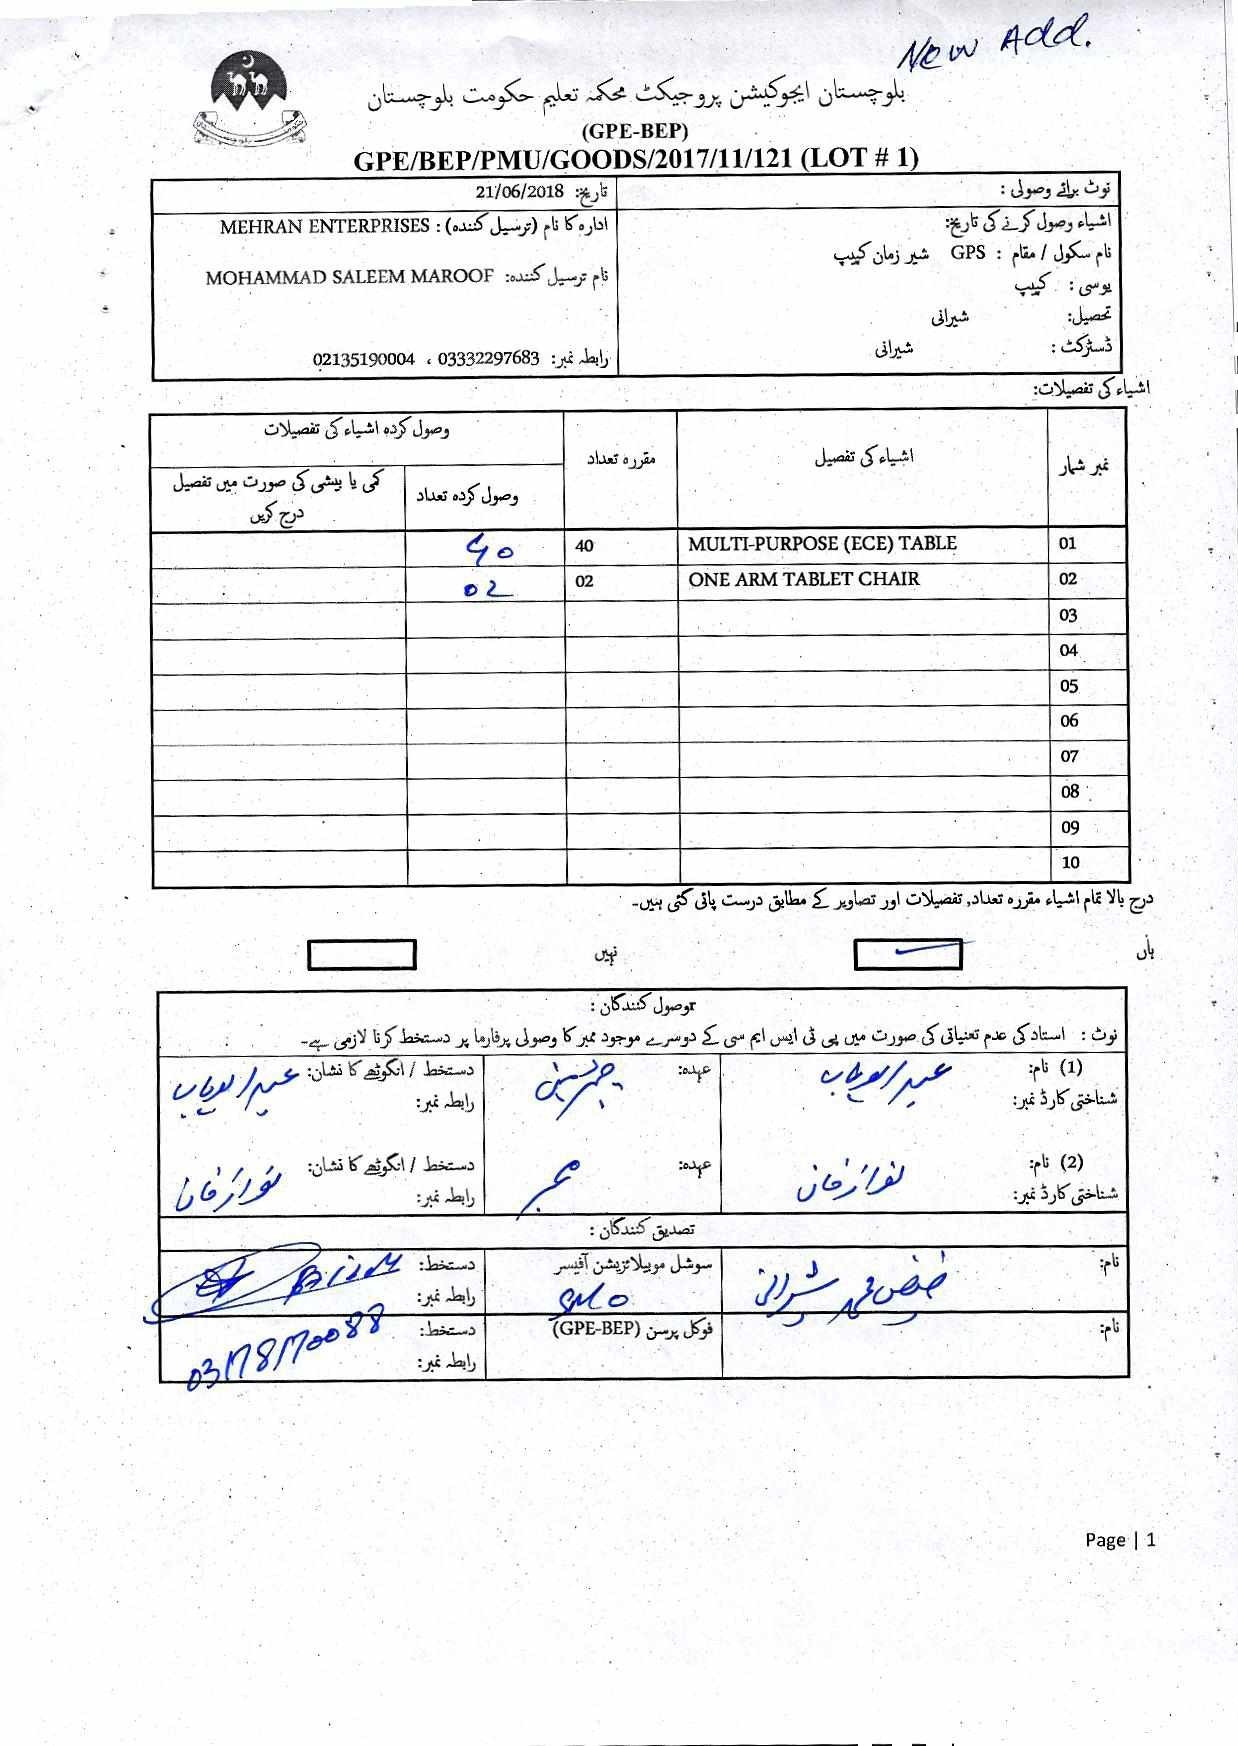 New Add.
بلوچستان ایجوکیشن پروجیکٹ محکمہ تعلیم حکومت بلوچستان
(GPE-BEP)
GPE/BEP/PMU/GOODS/2017/11/121 (LOT # 1)
نوٹ برائے وصولی :
تاریخ: 21/06/2018
اشیاء وصول کرنے کی تاریخ:
نام سکول / مقام : GPS شیر زمان کیپپ
یوسی : کیپپ
تحصیل: شیرانی
ڈسٹرکٹ : شیرانی
ادارہ کا نام (ترسیل کنندہ) : MEHRAN ENTERPRISES
نام ترسیل کنندہ: MOHAMMAD SALEEM MAROOF
رابطہ نمبر: 03332297683 ، 02135190004
اشیاء کی تفصیلات:
نمبر شمار اشیاء کی تفصیل مقررہ تعداد وصول کردہ اشیاء کی تفصیلات
وصول کردہ تعداد کمی یا بیشی کی صورت میں تفصیل درج کریں
01 MULTI-PURPOSE (ECE) TABLE 40 40
02 ONE ARM TABLET CHAIR 02 02
03
04
05
06
07
08
09
10
درج بالا تمام اشیاء مقررہ تعداد, تفصیلات اور تصاویر کے مطابق درست پائی گئی ہیں۔
ہاں نہیں
وصول کنندگان :
نوٹ : استاد کی عدم تعیناتی کی صورت میں پی ٹی ایس ایم سی کے دوسرے موجود ممبر کا وصولی پرفارما پر دستخط کرنا لازمی ہے۔
(1) نام: عبدالوہاب عہدہ: دستخط / انگوٹھے کا نشان: عبدالوہاب
شناختی کارڈ نمبر: رابطہ نمبر:
(2) نام: نواز خان عہدہ: ممبر دستخط / انگوٹھے کا نشان: نواز خان
شناختی کارڈ نمبر: رابطہ نمبر:
تصدیق کنندگان :
نام: شیرانی سوشل موبیلائزیشن آفیسر دستخط:
SMO رابطہ نمبر:
نام: فوکل پرسن (GPE-BEP) دستخط:
03178170088
رابطہ نمبر:
Page | 1